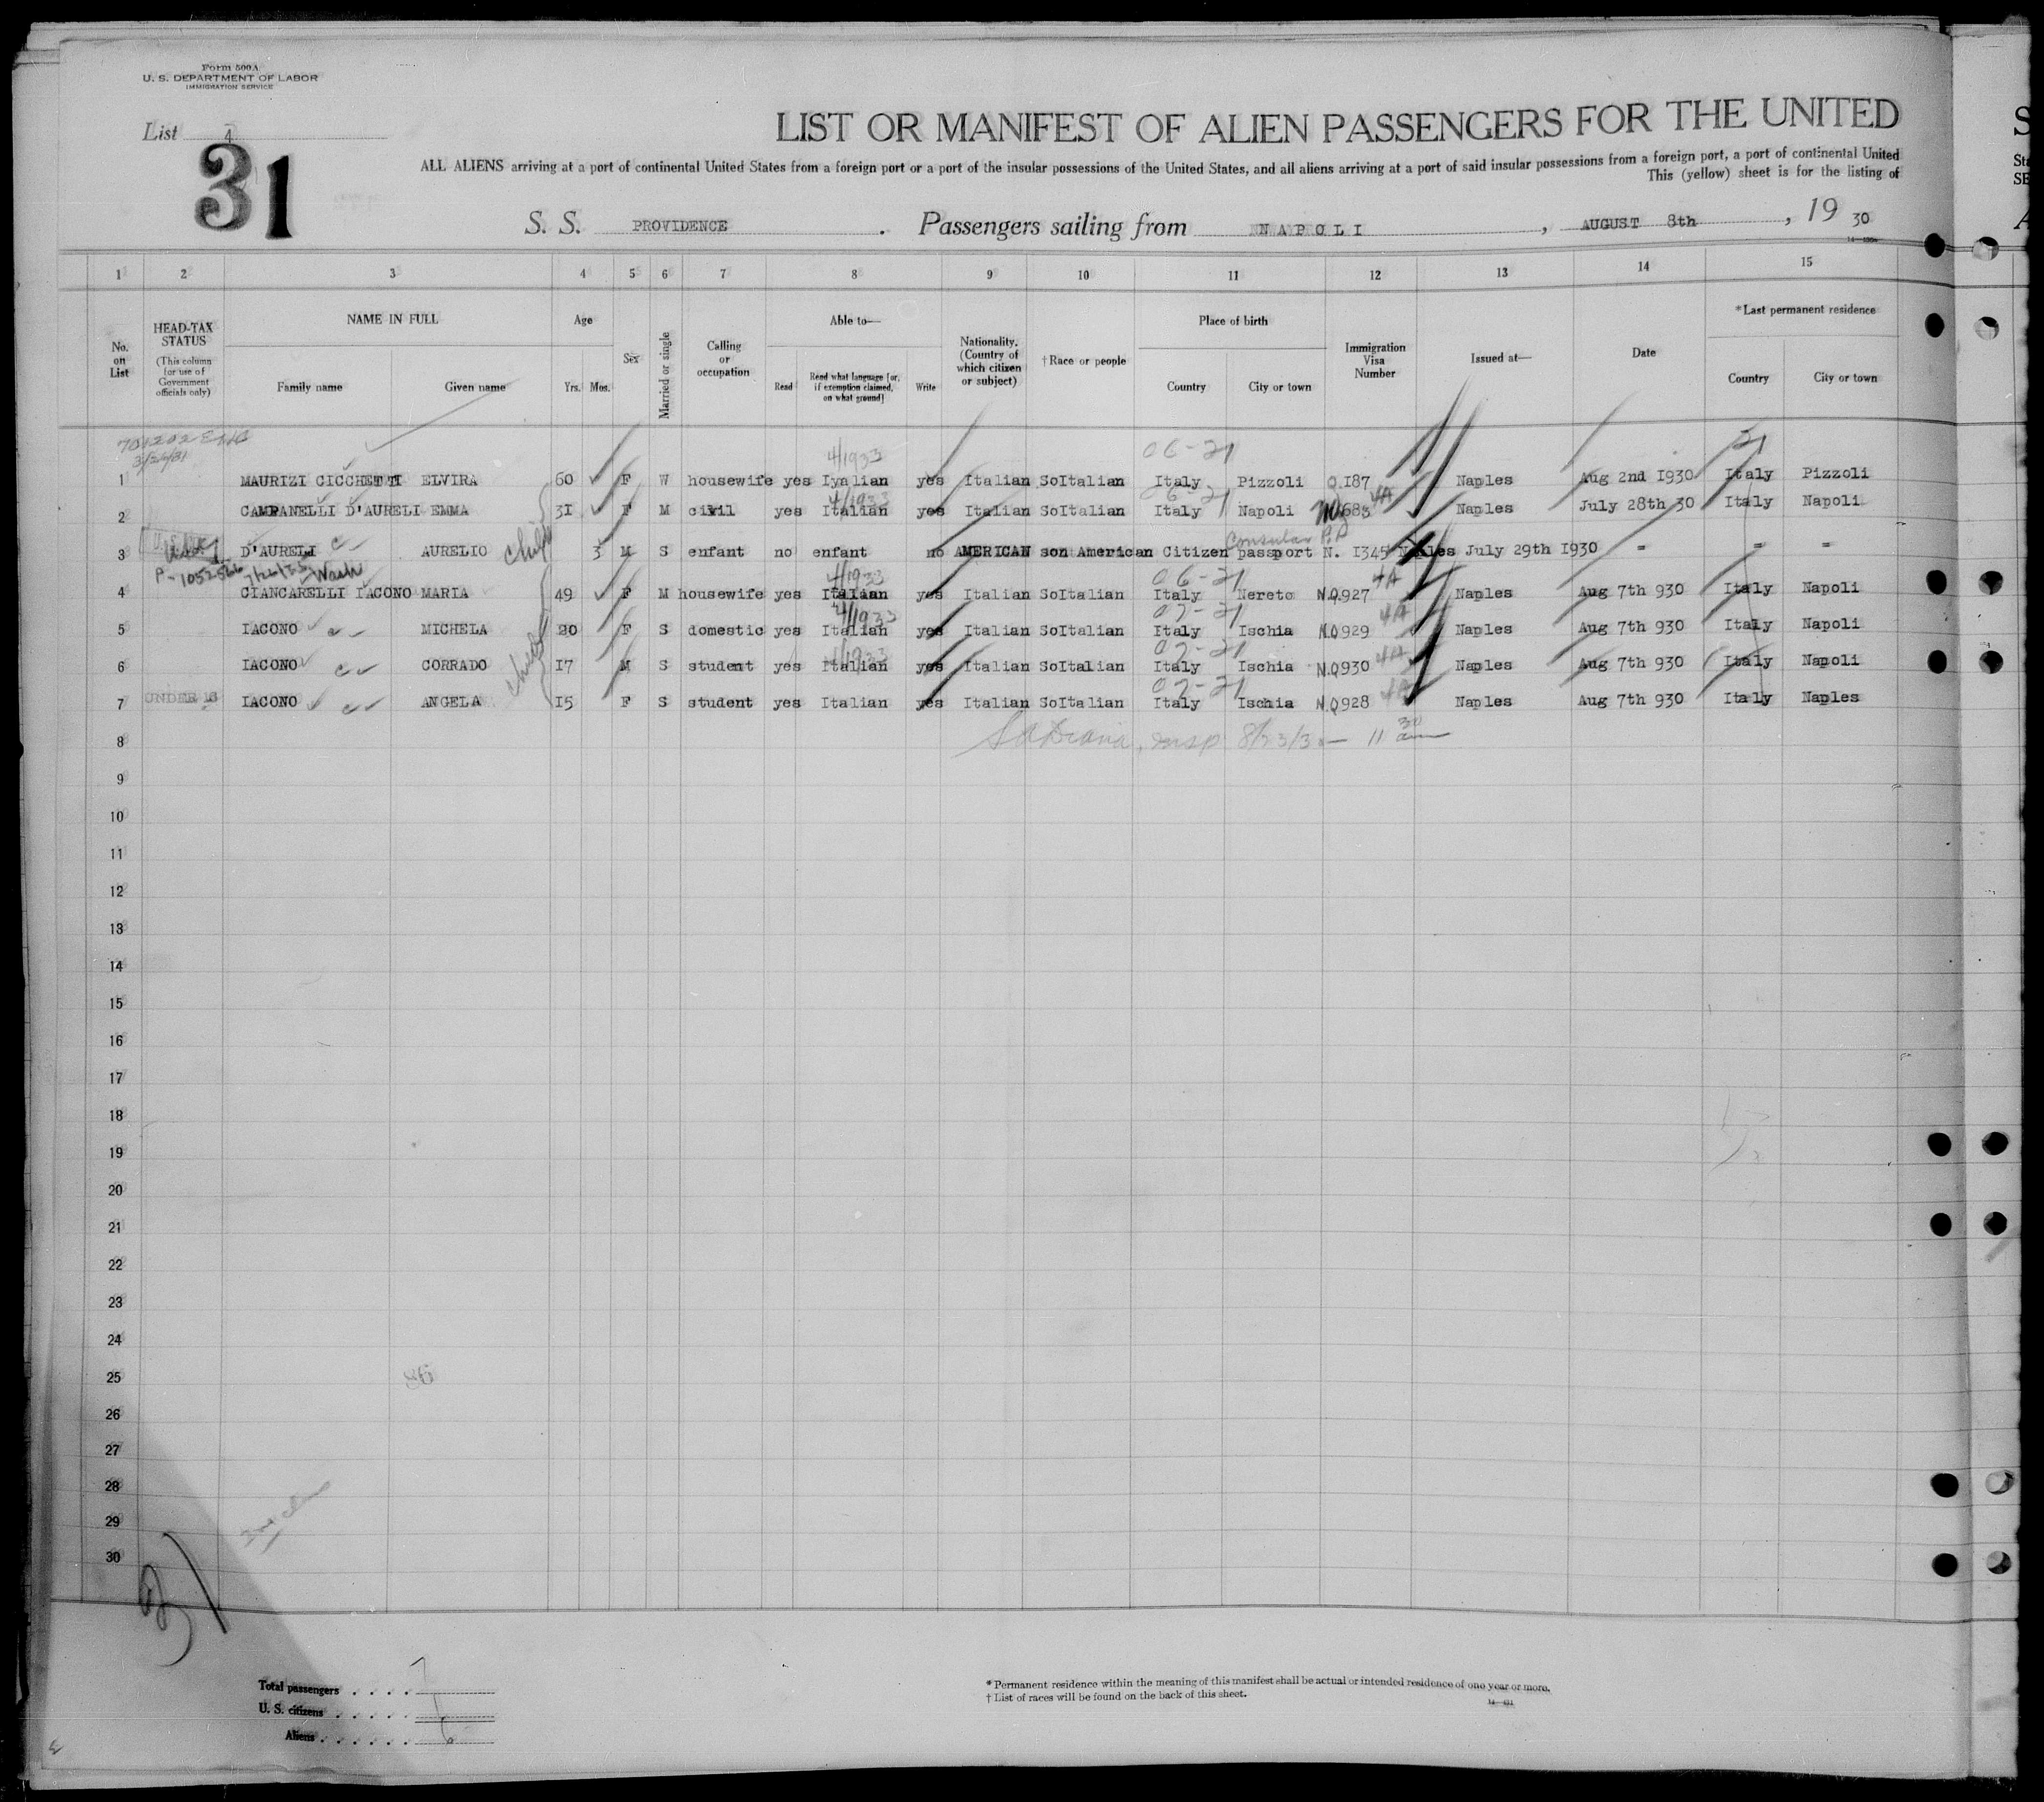 Form 500A
U. S. DEPARTMENT OF LABOR
IMMIGRATION SERVICE
List 4
31
LIST OR MANIFEST OF ALIEN PASSENGERS FOR THE UNITED
ALL ALIENS arriving at a port of continental United States from a foreign port or a port of the insular possessions of the United States, and all aliens arriving at a port of said insular possessions from a foreign port, a port of continental United
This (yellow) sheet is for the listing of
S. S. PROVIDENCE . Passengers sailing from NAPOLI , AUGUST 8th , 19 30
1 2 3 4 5 6 7 8 9 10 11 12 13 14 15
No. on List
HEAD-TAX STATUS
(This column for use of Government officials only)
NAME IN FULL
Family name Given name
Age
Yrs. Mos.
Sex
Married or single
Calling or occupation
Able to—
Read
Read what language [or, if exemption claimed, on what ground]
Write
Nationality. (Country of which citizen or subject)
†Race or people
Place of birth
Country City or town
Immigration Visa Number
Issued at—
Date
*Last permanent residence
Country City or town
3/24/31
4/1933 06-21 21
1 MAURIZI CICCHETTI ELVIRA 60 F W housewife yes Iyalian yes Italian SoItalian Italy Pizzoli 0.187 Naples Aug 2nd 1930 Italy Pizzoli
4/1933 06-21 4A
2 CAMPANELLI D'AURELI EMMA 31 F M civil yes Italian yes Italian SoItalian Italy Napoli Naples July 28th 30 Italy Napoli
Consular P.P
3 D'AURELI AURELIO child 3 M S enfant no enfant no AMERICAN son American Citizen passport N. 1345 Naples July 29th 1930 - - -
P-1052566 Wash
4/1933 06-21 4A
4 CIANCARELLI IACONO MARIA 49 F M housewife yes Italian yes Italian SoItalian Italy Nereto NO927 Naples Aug 7th 930 Italy Napoli
4/1933 07-21 4A
5 IACONO MICHELA 20 F S domestic yes Italian yes Italian SoItalian Italy Ischia NO929 Naples Aug 7th 930 Italy Napoli
4/1933 07-21 4A
6 IACONO CORRADO 17 M S student yes Italian yes Italian SoItalian Italy Ischia NO930 Naples Aug 7th 930 Italy Napoli
07-21 4A
7 UNDER 16 IACONO ANGELA 15 F S student yes Italian yes Italian SoItalian Italy Ischia NO928 Naples Aug 7th 930 Italy Naples
8 insp 8/23/30 — 11 30 am
9
10
11
12
13
14
15
16
17
18
19
20
21
22
23
24
25
26
27
28
29
30
31
Total passengers . . . . 7
U. S. citizens . . . . . 1
Aliens . . . . . . 6
* Permanent residence within the meaning of this manifest shall be actual or intended residence of one year or more.
† List of races will be found on the back of this sheet.